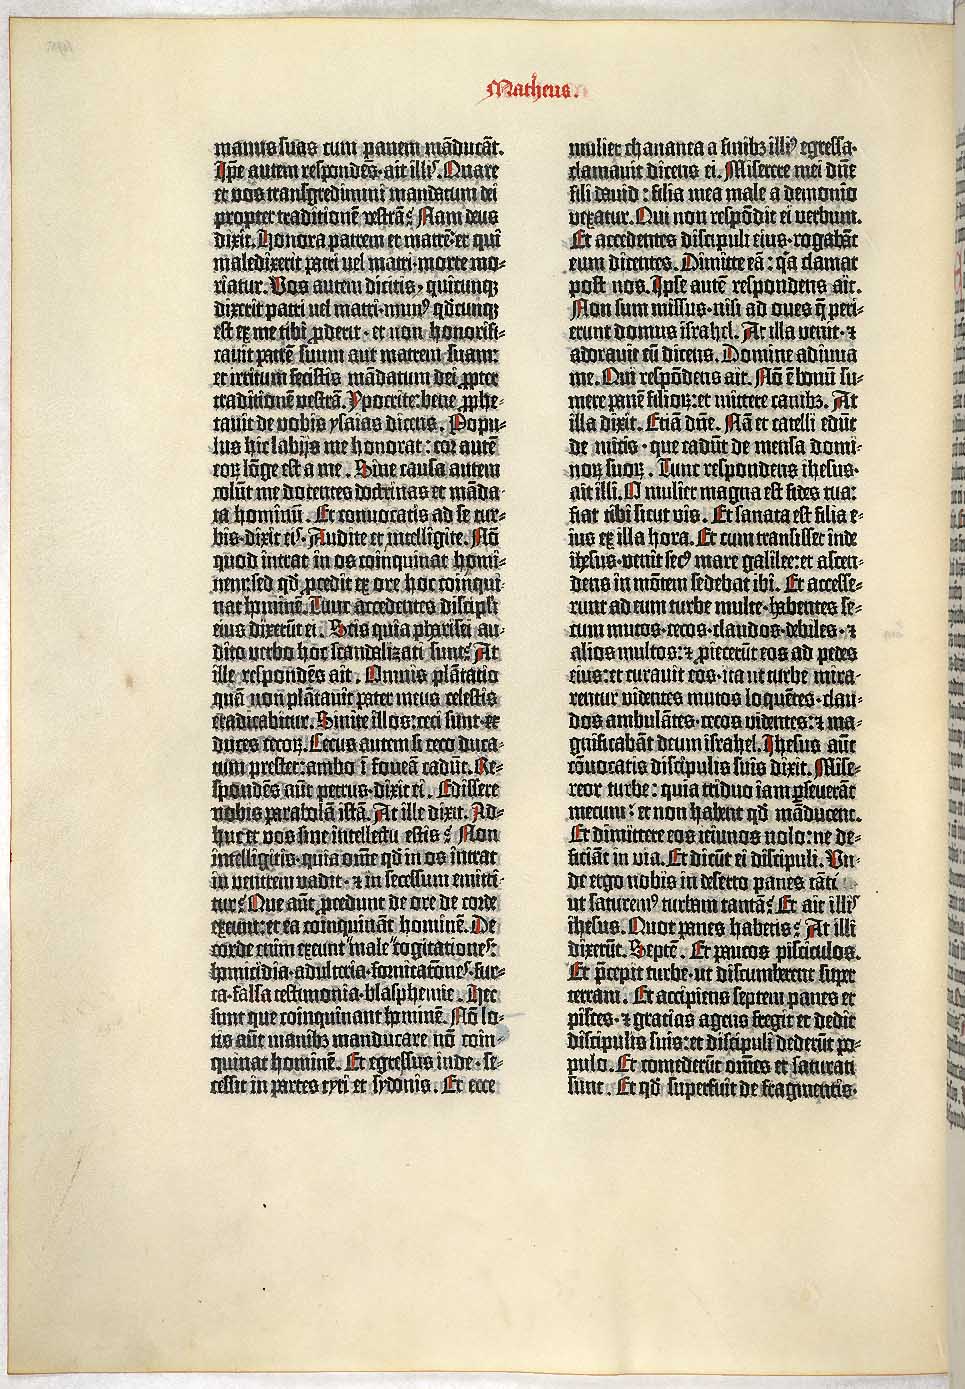 Matheus.
manus suas cum panem māducāt.
Ip̄e autem respondēs·ait illis. Quare
et vos transgredimini mandatum dei
propter traditionē vestrā? Nam deus
dixit. Honora patrem et matrē·et qui
maledixerit patri vel matri·morte mo-
riatur. Vos autem dicitis·quicunqꝫ
dixerit patri vel matri·munꝰ qd̄cunqꝫ
est ex me tibi ꝓderit·et non honorifi-
cavit patrē suum aut matrem suam:
et irritum fecistis mādatum dei ꝓpter
traditionē vestrā. Ypocrite: bene ꝓphe-
tavit de vobis ysaias dicens. Popu-
lus hic labijs me honorat: cor autē
eoꝝ lōge est a me. Sine causa autem
colūt me docentes doctrinas et māda-
ta hominū. Et convocatis ad se tur-
bis·dixit eis. Audite et intelligite. Nō
quod intrat in os coinquinat homi-
nem: sed qd̄ ꝓcedit ex ore hoc coinqui-
nat hominē. Tunc accedentes discipli
eius dixerūt ei. Scis quia pharisei au-
dito verbo hoc scandalizati sunt? At
ille respondēs ait. Omnis plātatio
quā non plātavit pater meus celestis
eradicabitur. Sinite illos: ceci sunt·et
duces cecoꝝ. Cecus autem si ceco duca-
tum prestet: ambo ī foveā cadūt. Re-
spondēs aūt petrus·dixit ei. Edissere
nobis parabolā istā. At ille dixit. Ad-
huc et vos sine intellectu estis? Non
intelligitis·quia om̄e qd̄ in os intrat
in ventrem vadit·⁊ in secessum emitti-
tur? Que aūt ꝓcedunt de ore de corde
exeunt: et ea coinquināt hominē. De
corde enim exeunt male cogitationes:
homicidia·adulteria·fornicatōnes·fur-
ta·falsa testimonia·blasphemie. Hec
sunt que coinquinant hominē. Nō lo-
tis aūt manibꝫ manducare nō coin-
quinat hominē. Et egressus inde·se-
cessit in partes tyri et sydonis. Et ecce
mulier chananea a finibꝫ illiꝰ egressa·
clamavit dicens ei. Miserere mei dn̄e
fili david: filia mea male a demonio
vexatur. Qui non respōdit ei verbum.
Et accedentes discipuli eius·rogabāt
eum dicentes. Dimitte eā: q̄a clamat
post nos. Ipse autē respondens ait.
Non sum missus·nisi ad oves q̄ peri-
erunt domus israhel. At illa venit·⁊
adoravit eū dicens. Domine adiuva
me. Qui respōdens ait. Nō ē bonū su-
mere panē filioꝝ: et mittere canibꝫ. At
illa dixit. Etiā dn̄e. Nā et catelli edūt
de micis·que cadūt de mensa domi-
noꝝ suoꝝ. Tunc respondens ihesus·
ait illi. O mulier magna est fides tua:
fiat tibi sicut vis. Et sanata est filia e-
ius ex illa hora. Et cum transisset inde
ihesus·venit secꝰ mare galilee: et ascen-
dens in mōtem sedebat ibi. Et accesse-
runt ad eum turbe multe·habentes se-
cum mutos·cecos·claudos·debiles·⁊
alios multos: ⁊ ꝓiecerūt eos ad pedes
eius: et curavit eos·ita ut turbe mira-
rentur videntes mutos loquētes·clau-
dos ambulātes·cecos videntes: ⁊ ma-
gnificabāt deum israhel. Ihesus aūt
cōvocatis discipulis suis dixit. Mise-
reor turbe: quia triduo iam ꝑseverāt
mecum: et non habent qd̄ māducent.
Et dimittere eos ieiunos nolo: ne de-
ficiāt in via. Et dicūt ei discipuli. Un-
de ergo nobis in deserto panes tāti
ut saturemꝰ turbam tantā? Et ait illis
ihesus. Quot panes habetis? At illi
dixerūt. Septē. Et paucos pisciculos.
Et p̄cepit turbe·ut discumberent super
terram. Et accipiens septem panes et
pisces·⁊ gratias agens fregit et dedit
discipulis suis: et discipuli dederūt po-
pulo. Et comederūt om̄es et saturati
sunt. Et qd̄ superfuit de fragmentis·